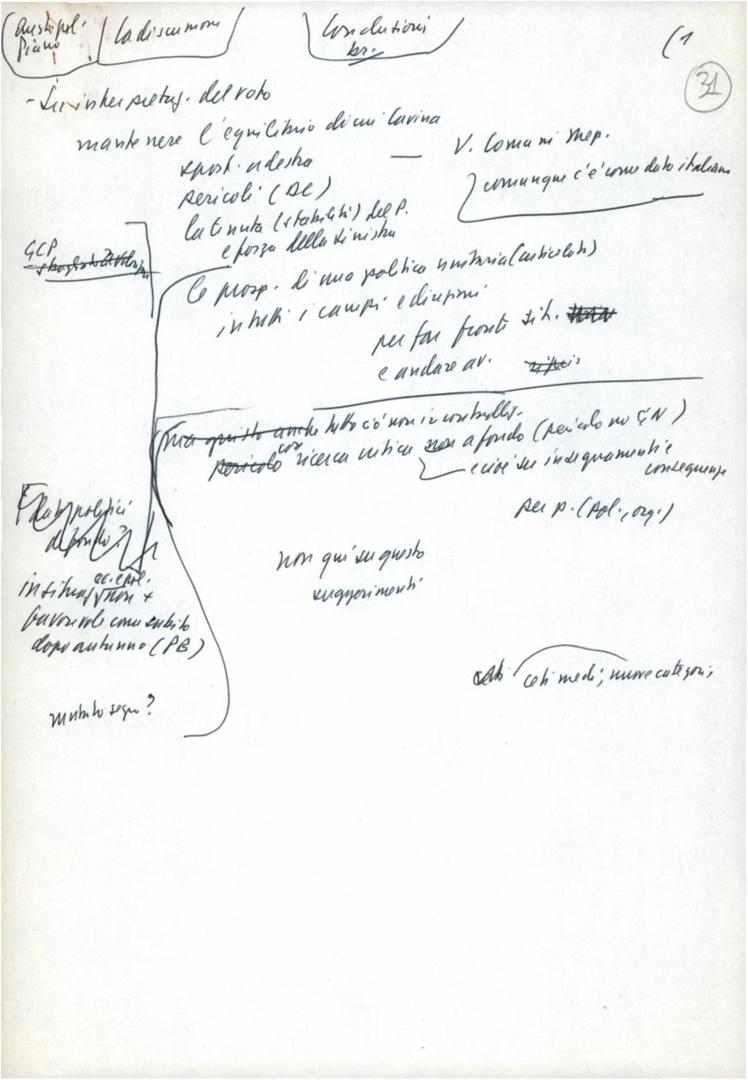 La discussione
Conclusioni
br.
(1
31
- Su interpretaz. del voto
mantenere l'equilibrio di cui Cavina
spost. a destra
pericoli (DC)
la tenuta (stabilità) del P.
e forza della sinistra
V. Comuni
comunque c'è come dato italiano
GCP
le prosp. di una politica unitaria (articolata)
in tutti i campi e direzioni
per far fronte sit.
e andare av.
Ma questo anche tutto ciò non in contraddiz.
pericolo con ricerca critica non a fondo (pericolo no CN)
e cioè su insegnamenti e
conseguenze
per p. (pol., org.)
dati politici
di fondo?
ec. e pol.
non +
favorevole come subito
dopo autunno (PB)
non qui su questo
suggerimenti
ceti medi; nuove categorie
mutato segno?